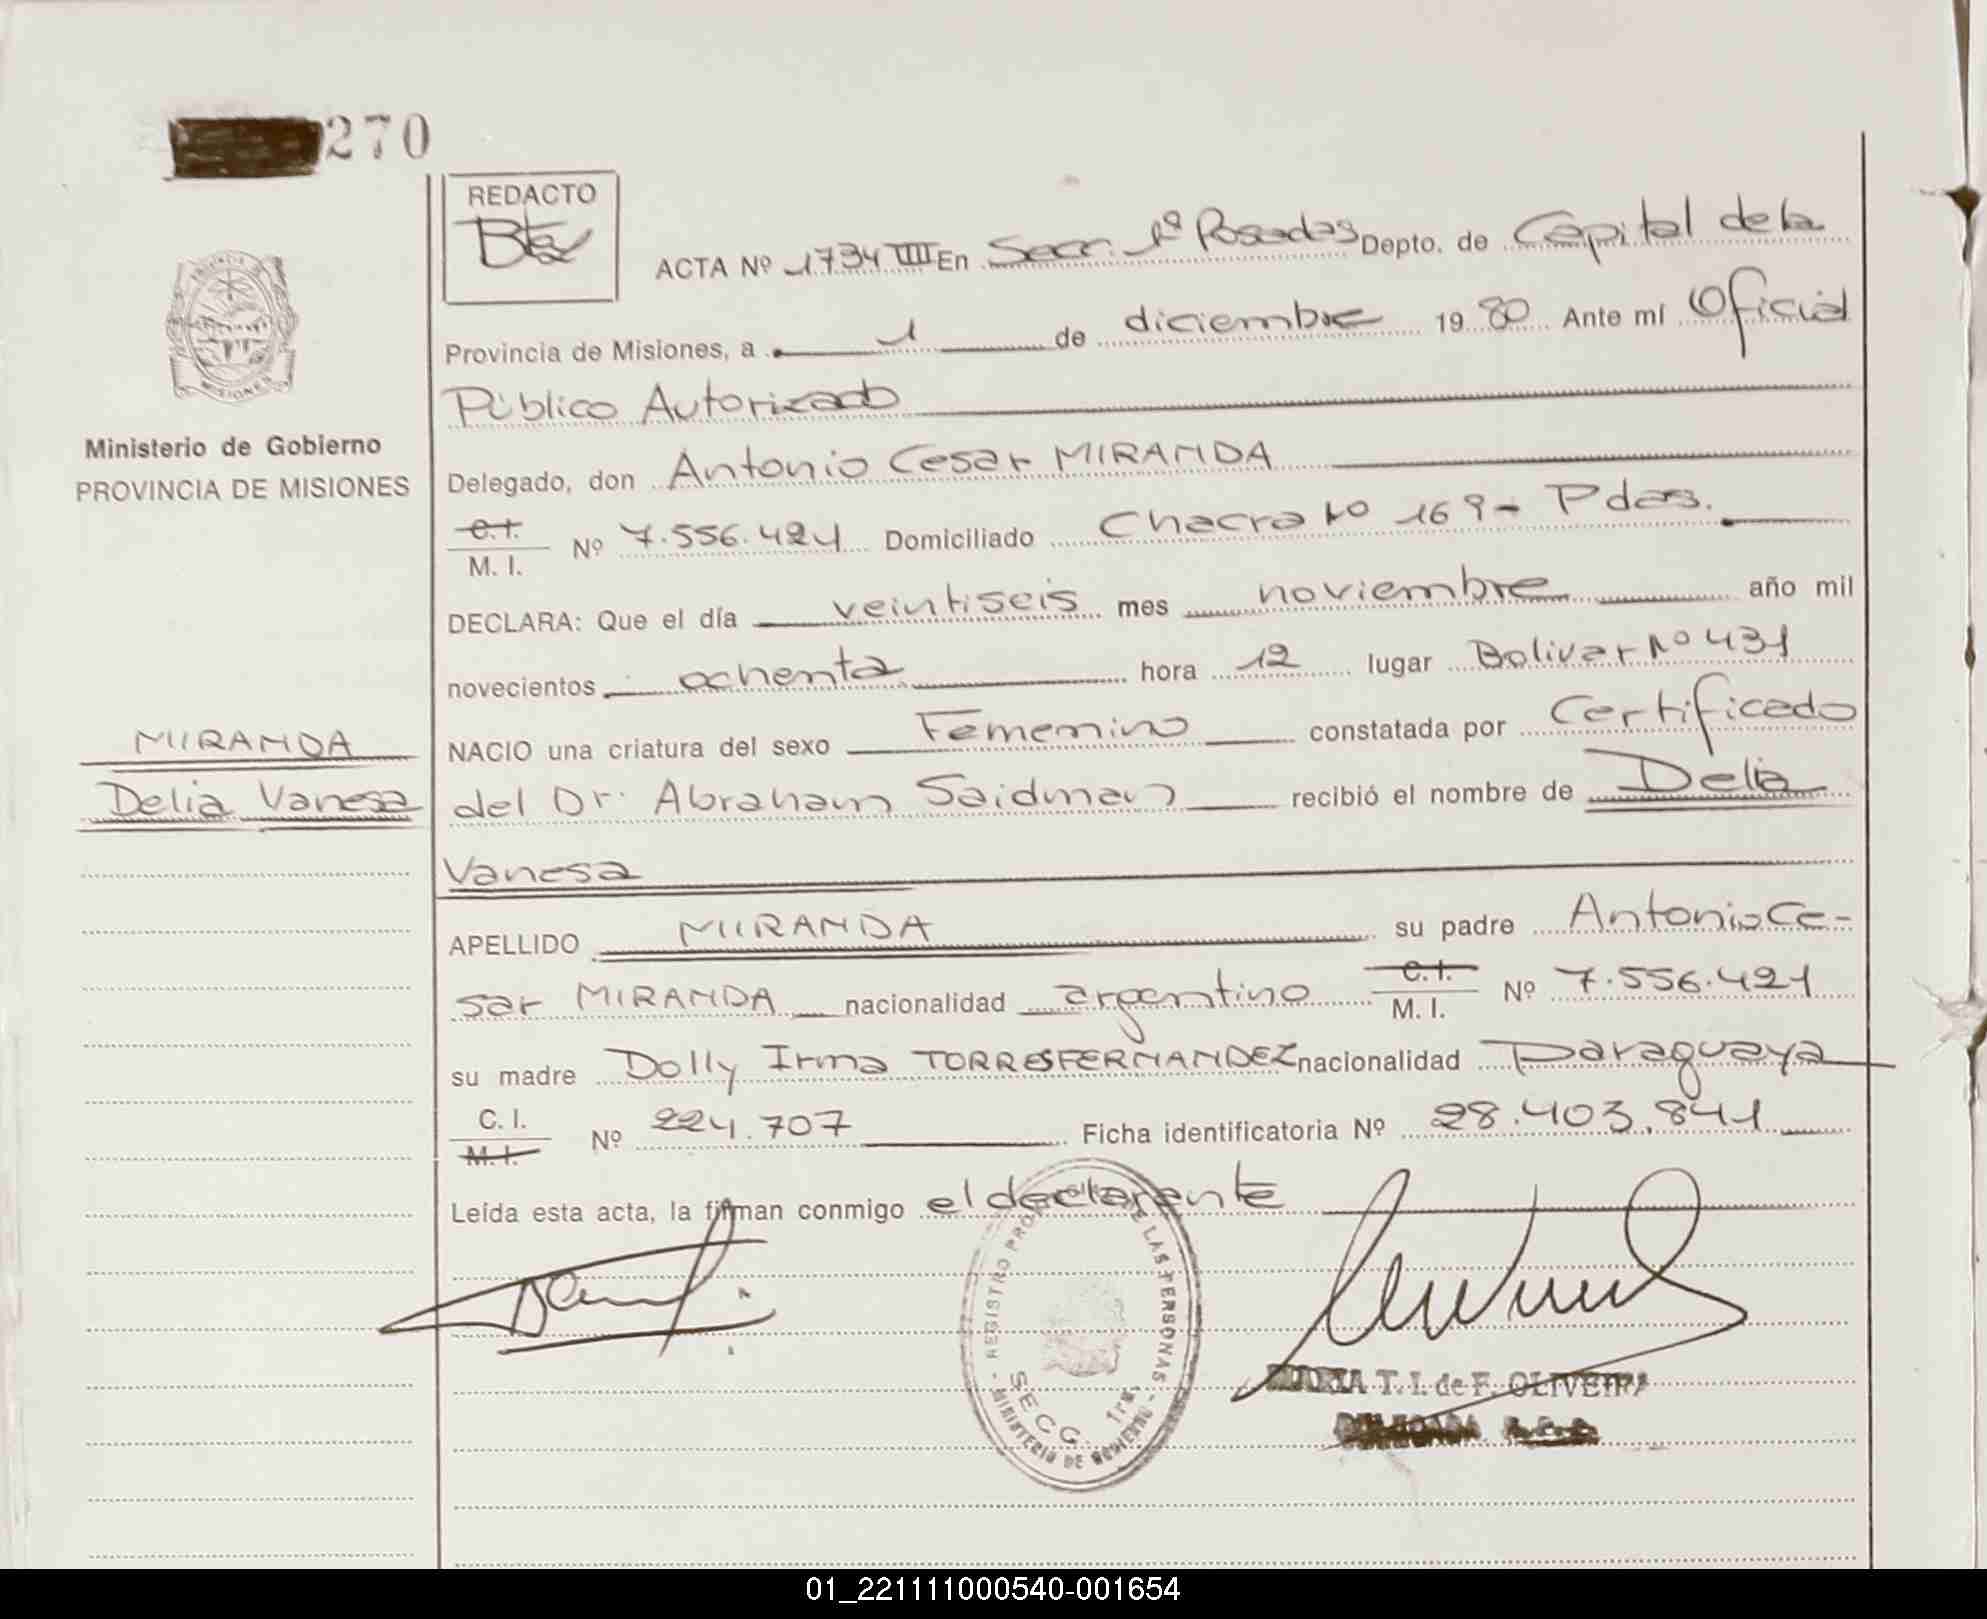 270
REDACTO
ACTA Nº 1734 VIII En Secc. 1ª Posadas Depto. de Capital de la
Provincia de Misiones, a 1 de diciembre 1980 Ante mí Oficial
Público Autorizado
Ministerio de Gobierno
PROVINCIA DE MISIONES
Delegado, don Antonio Cesar MIRANDA
C.I.
M. I. Nº 7.556.421 Domiciliado Chacra Nº 169 - Pdas.
DECLARA: Que el día veintiseis mes noviembre año mil
novecientos ochenta hora 12 lugar Bolivar Nº 431
MIRANDA
Delia Vanesa
NACIO una criatura del sexo Femenino constatada por Certificado
del Dr. Abraham Saidman recibió el nombre de Delia
Vanesa
APELLIDO MIRANDA su padre Antonio Ce-
sar MIRANDA nacionalidad argentino C.I. M. I. Nº 7.556.421
su madre Dolly Irma TORRES FERNANDEZ nacionalidad Paraguaya
C. I.
M.I. Nº 224.707 Ficha identificatoria Nº 28.403.841
Leída esta acta, la firman conmigo el declarante
REGISTRO PRO DE LAS PERSONAS - MINISTERIO DE GOBIERNO -
SECC. 1ra.
T. I. de F. OLIVEIRA
DELEGADA
01_221111000540-001654